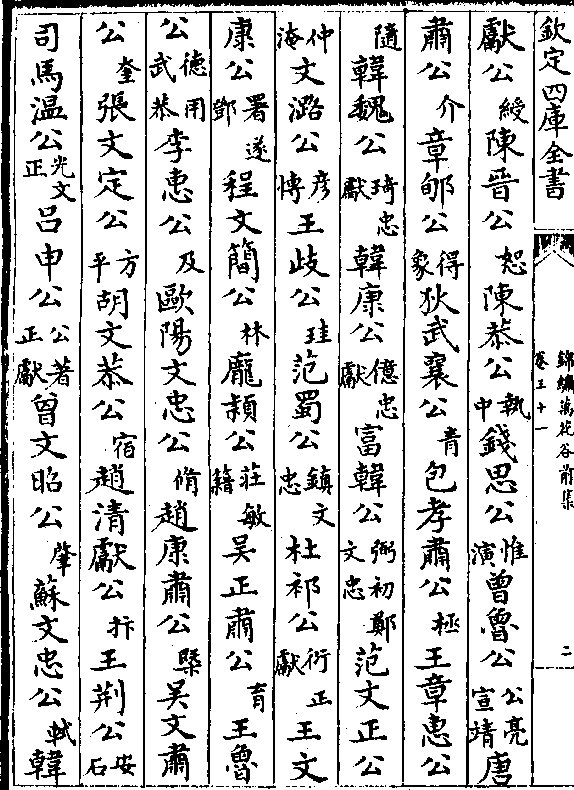 欽定四庫全書
錦繡萬花谷前集
卷三十一
二
獻公綬陳晉公恕陳恭公執中錢思公惟演曾魯公公亮宣靖唐
肅公介章郇公得象狄武襄公青包孝肅公極王章惠公
隨韓魏公琦忠獻韓康公億忠獻富韓公弼初鄭文忠范文正公
仲淹文潞公彥博王歧公珪范蜀公鎮文忠杜祁公衍正獻王文
康公署遂鄧程文簡公林龐潁公莊敏籍吳正肅公育王魯
公德用武恭李惠公及歐陽文忠公脩趙康肅公槩吳文肅
公奎張文定公方平胡文恭公宿趙清獻公抃王荆公安石
司馬温公光文正吕申公公著正獻曾文昭公肇蘇文忠公軾韓